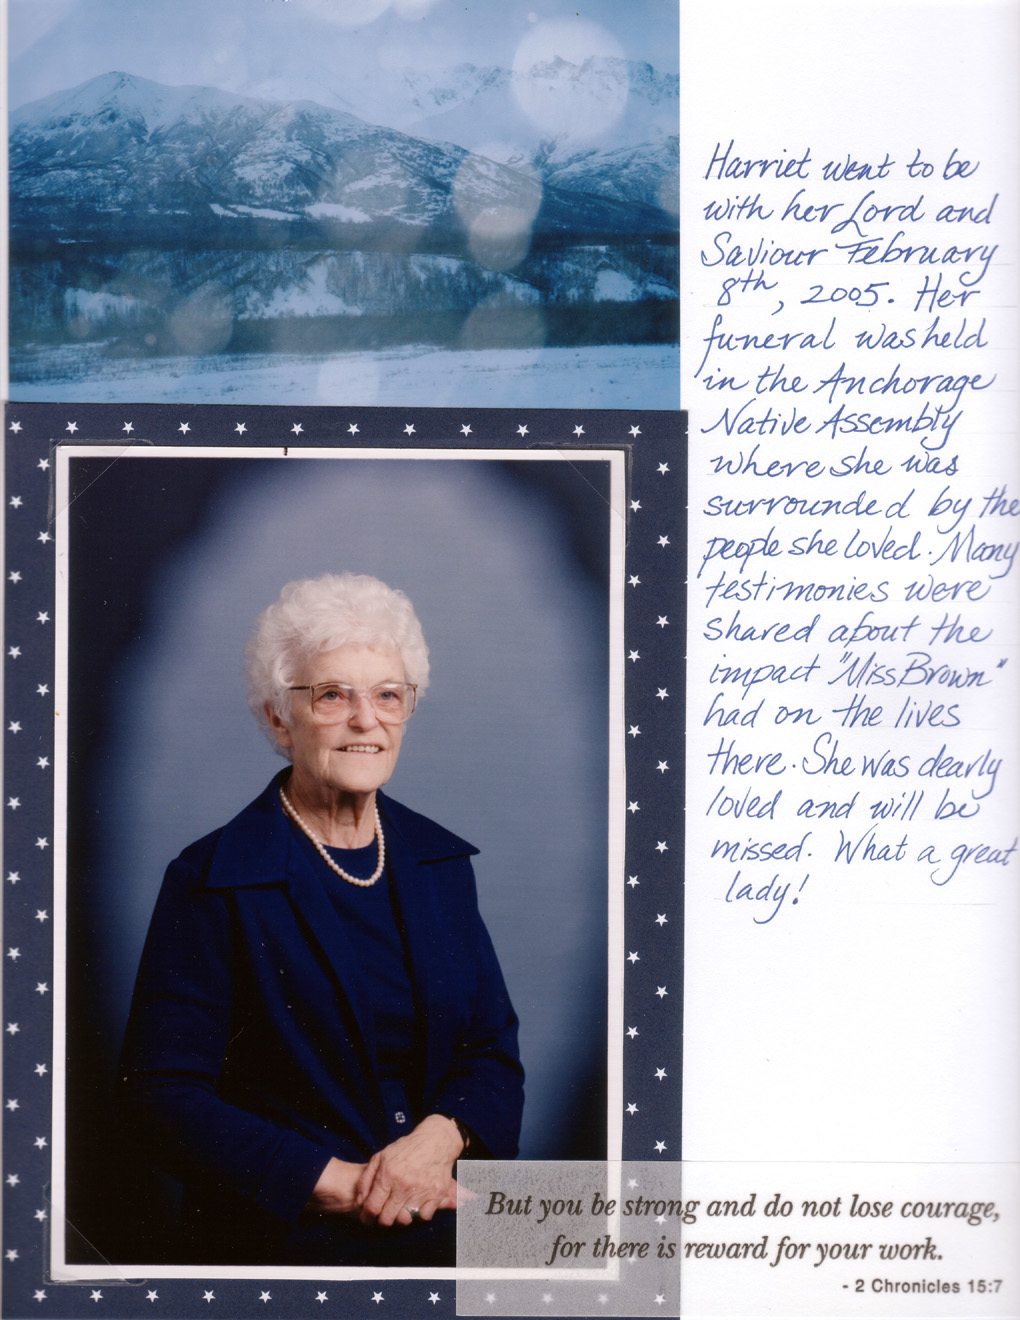 Harriet went to be
with her Lord and
Saviour February
8th, 2005. Her
funeral was held
in the Anchorage
Native Assembly
where she was
surrounded by the
people she loved. Many
testimonies were
shared about the
impact "Miss Brown"
had on the lives
there. She was dearly
loved and will be
missed. What a great
lady!
But you be strong and do not lose courage,
for there is reward for your work.
- 2 Chronicles 15:7